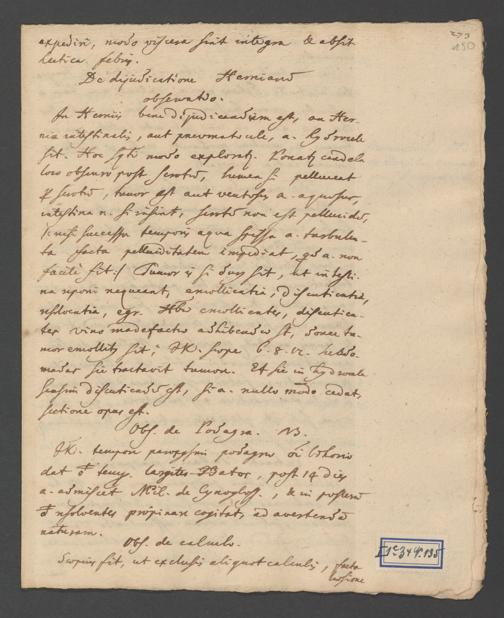 273
150
expediri, modo viscera sint integra & absit
hectica febris.
De dijudicatione Herniarum
observatio.
In Herniis bene dijudicandum est, an Her-
nia intestinalis, aut pneumatocele, a. hydrocele
sit. Hoc modo explorat. Ponatur candela
loco obscuro post scrotum, lumen si pelluceat
scrotum, tumor est aut ventosus a. aquosus,
intestina n. si insint, scrotum non est pellucidum,
nisi successu temporis aqua spissa a. turbulen-
ta facta pelluciditatem impediat, qd a. non
facile fit. Tumor si durus sit, ut intesti-
na reponi nequeant, emollientia, discutientia,
resolventia, egr. emollientes, discutien-
tes vino madefactae adhibendae st, donec tu-
mor emollitus sit; saepe 6. 8. 12. hebdo-
madas sic tractavit tumorem. Et sic in hydrocele
sensim discutiendum est, si a. nullo modo cedat,
sectione opus est.
Obs. de Podagra. NB.
tempore paroxysmi podagrae
dat post 14 dies
a. admiscet de Cynogloss., & in posterum
resolventes propinare cogitat, ad avertendam
materiam.
Obs. de calculo.
Saepius fit, ut exclusis aliquot calculis, facta